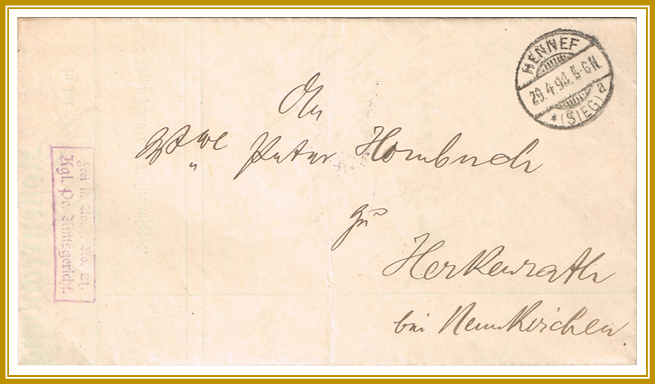 HENNEF
29.4.98. 5-6N.
* (SIEG) a
An
Wwe Peter Hombuch
zu
Herkenrath
bei Neunkirchen.
Frei lt. Avers. No. 21.
Kgl. Pr. Amtsgericht.